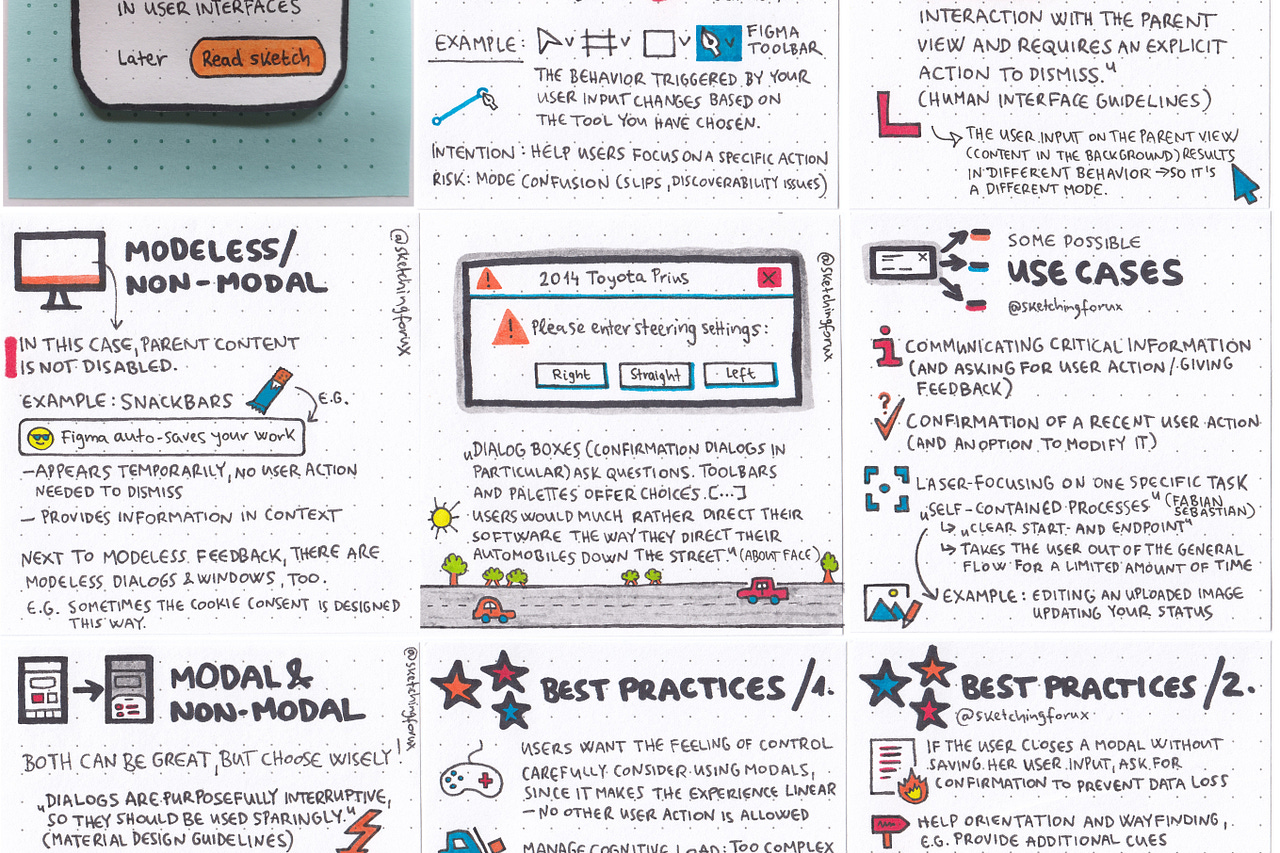 IN USER INTERFACES
Later
Read sketch
EXAMPLE:
FIGMA
TOOLBAR
THE BEHAVIOR TRIGGERED BY YOUR
USER INPUT CHANGES BASED ON
THE TOOL YOU HAVE CHOSEN.
INTENTION: HELP USERS FOCUS ON A SPECIFIC ACTION
RISK: MODE CONFUSION (SLIPS, DISCOVERABILITY ISSUES)
INTERACTION WITH THE PARENT
VIEW AND REQUIRES AN EXPLICIT
ACTION TO DISMISS."
(HUMAN INTERFACE GUIDELINES)
THE USER INPUT ON THE PARENT VIEW
(CONTENT IN THE BACKGROUND) RESULTS
IN DIFFERENT BEHAVIOR → SO IT'S
A DIFFERENT MODE.
MODELESS/
NON-MODAL
@sketchingforux
IN THIS CASE, PARENT CONTENT
IS NOT DISABLED.
EXAMPLE: SNACKBARS
E.G.
Figma auto-saves your work
- APPEARS TEMPORARILY, NO USER ACTION
NEEDED TO DISMISS
- PROVIDES INFORMATION IN CONTEXT
NEXT TO MODELESS FEEDBACK, THERE ARE
MODELESS DIALOGS & WINDOWS, TOO.
E.G. SOMETIMES THE COOKIE CONSENT IS DESIGNED
THIS WAY.
2014 Toyota Prius
@sketchingforux
Please enter steering settings:
Right
Straight
Left
„DIALOG BOXES (CONFIRMATION DIALOGS IN
PARTICULAR) ASK QUESTIONS. TOOLBARS
AND PALETTES OFFER CHOICES. [...]
USERS WOULD MUCH RATHER DIRECT THEIR
SOFTWARE THE WAY THEY DIRECT THEIR
AUTOMOBILES DOWN THE STREET" (ABOUT FACE)
SOME POSSIBLE
USE CASES
@sketchingforux
COMMUNICATING CRITICAL INFORMATION
(AND ASKING FOR USER ACTION / GIVING
FEEDBACK)
CONFIRMATION OF A RECENT USER ACTION
(AND AN OPTION TO MODIFY IT)
LASER-FOCUSING ON ONE SPECIFIC TASK
„SELF-CONTAINED PROCESSES" (FABIAN
SEBASTIAN)
↳ „CLEAR START- AND ENDPOINT"
↳ TAKES THE USER OUT OF THE GENERAL
FLOW FOR A LIMITED AMOUNT OF TIME
EXAMPLE: EDITING AN UPLOADED IMAGE
UPDATING YOUR STATUS
MODAL &
NON-MODAL
@sketchingforux
BOTH CAN BE GREAT, BUT CHOOSE WISELY!
„DIALOGS ARE PURPOSEFULLY INTERRUPTIVE,
SO THEY SHOULD BE USED SPARINGLY."
(MATERIAL DESIGN GUIDELINES)
BEST PRACTICES /1.
USERS WANT THE FEELING OF CONTROL
CAREFULLY CONSIDER USING MODALS,
SINCE IT MAKES THE EXPERIENCE LINEAR
- NO OTHER USER ACTION IS ALLOWED
MANAGE COGNITIVE LOAD: TOO COMPLEX
BEST PRACTICES /2.
@sketchingforux
IF THE USER CLOSES A MODAL WITHOUT
SAVING HER USER INPUT, ASK FOR
CONFIRMATION TO PREVENT DATA LOSS
HELP ORIENTATION AND WAYFINDING,
E.G. PROVIDE ADDITIONAL CUES